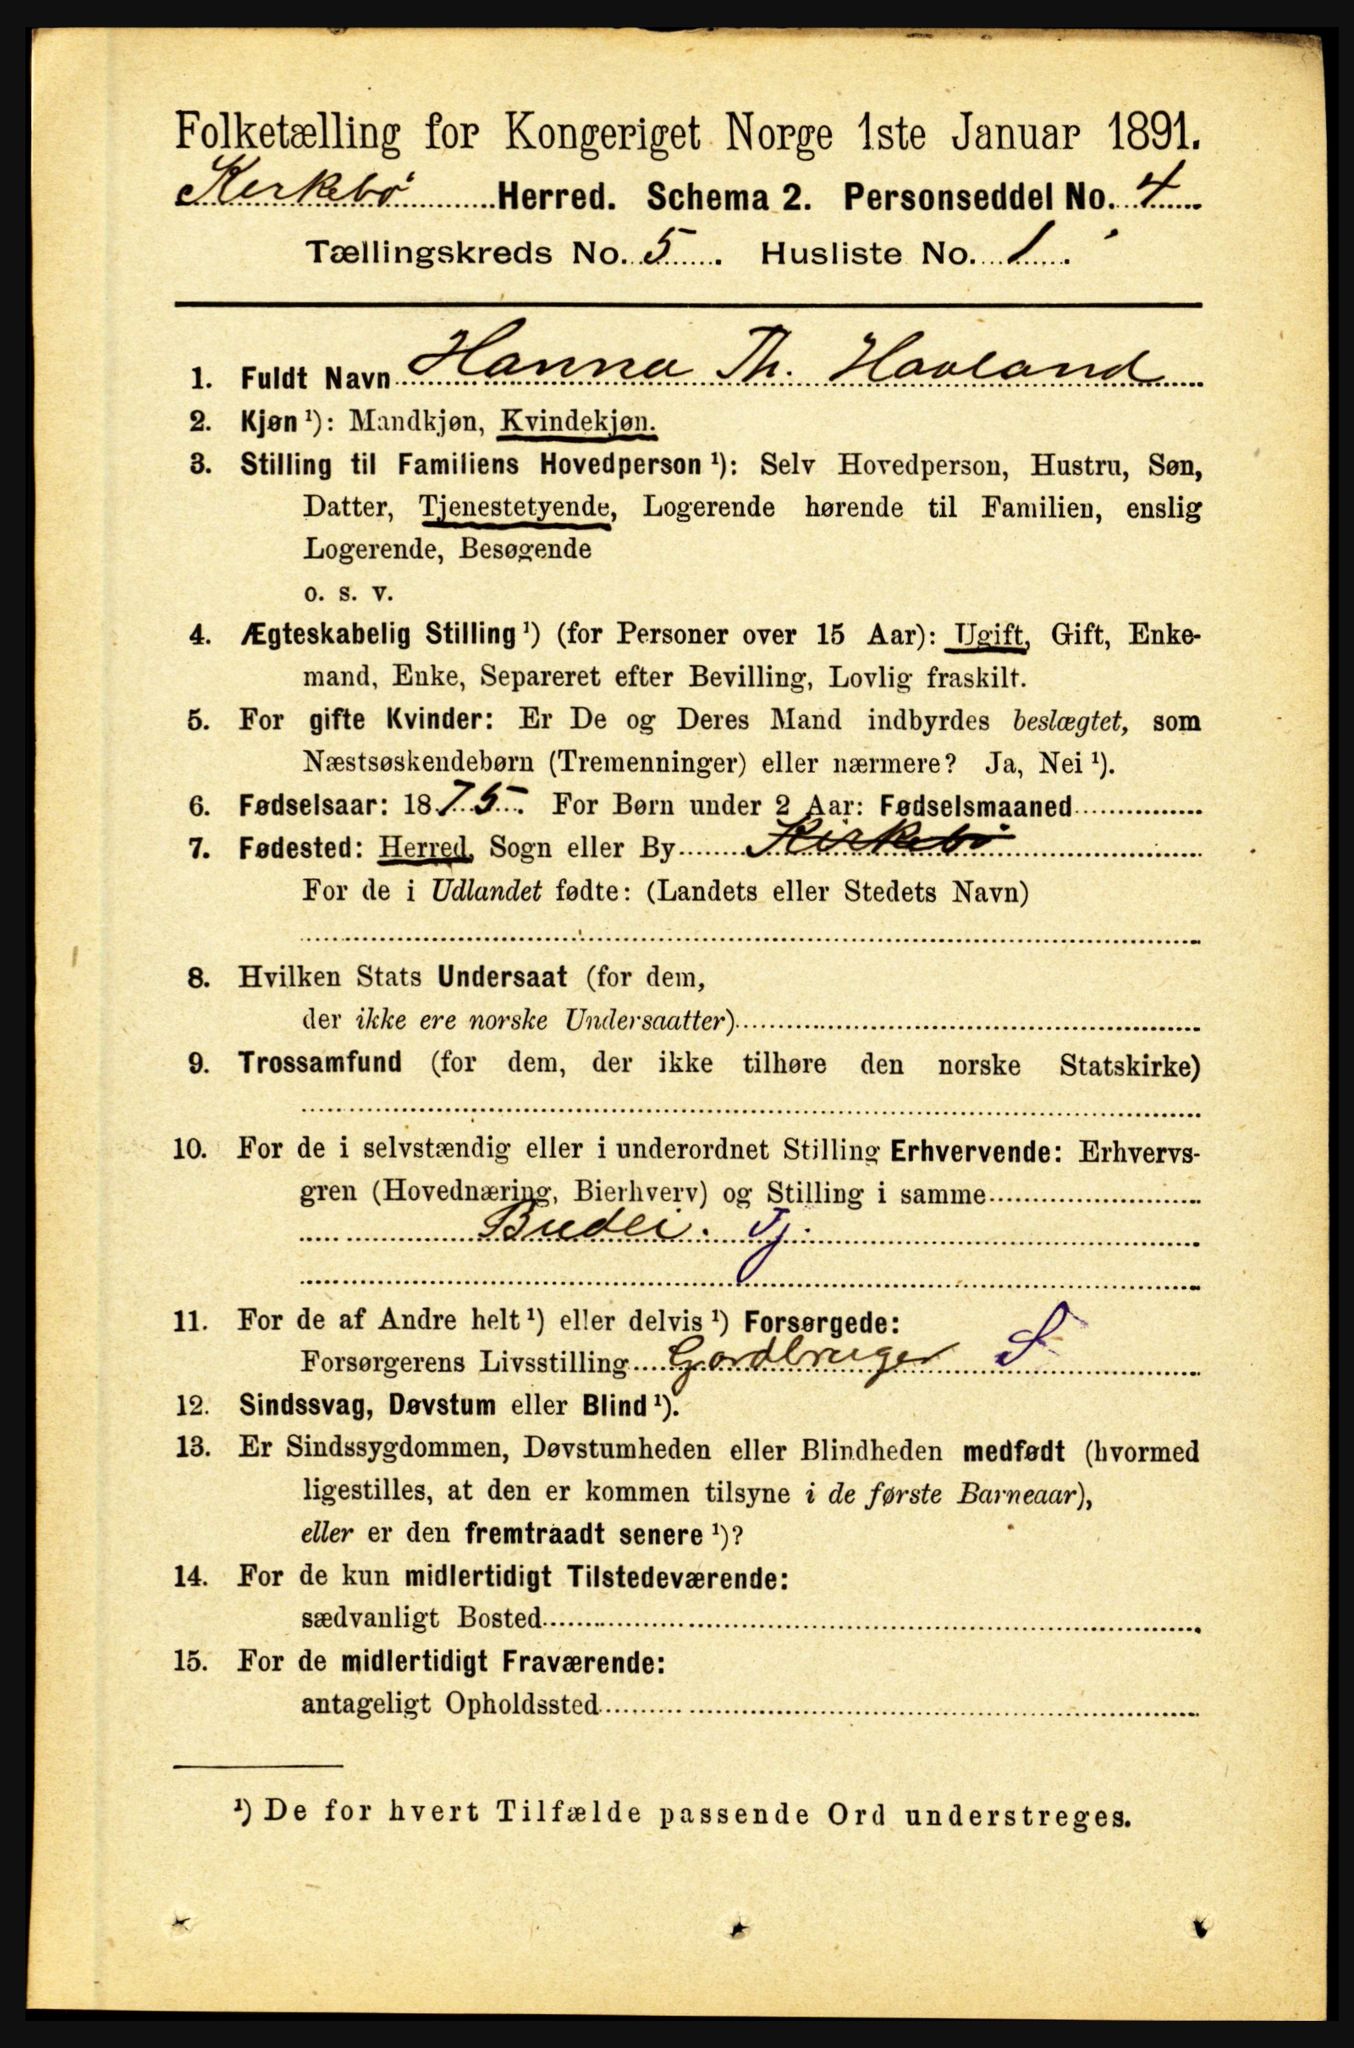 Folketælling for Kongeriget Norge 1ste Januar 1891.
Kirkebø Herred. Schema 2. Personseddel No. 4
Tællingskreds No. 5. Husliste No. 1.
1. Fuldt Navn Hanna Th. Havland
2. Kjøn ¹): Mandkjøn, Kvindekjøn.
3. Stilling til Familiens Hovedperson ¹): Selv Hovedperson, Hustru, Søn,
Datter, Tjenestetyende, Logerende hørende til Familien, enslig
Logerende, Besøgende
o. s. v.
4. Ægteskabelig Stilling ¹) (for Personer over 15 Aar): Ugift, Gift, Enke-
mand, Enke, Separeret efter Bevilling, Lovlig fraskilt.
5. For gifte Kvinder: Er De og Deres Mand indbyrdes beslægtet, som
Næstsøskendebørn (Tremenninger) eller nærmere? Ja, Nei ¹).
6. Fødselsaar: 1875. For Børn under 2 Aar: Fødselsmaaned
7. Fødested: Herred, Sogn eller By Kirkebø
For de i Udlandet fødte: (Landets eller Stedets Navn)
8. Hvilken Stats Undersaat (for dem,
der ikke ere norske Undersaatter)
9. Trossamfund (for dem, der ikke tilhøre den norske Statskirke)
10. For de i selvstændig eller i underordnet Stilling Erhvervende: Erhvervs-
gren (Hovednæring, Bierhverv) og Stilling i samme
Budei. Tj.
11. For de af Andre helt ¹) eller delvis ¹) Forsørgede:
Forsørgerens Livsstilling Gardbruger S
12. Sindssvag, Døvstum eller Blind ¹).
13. Er Sindssygdommen, Døvstumheden eller Blindheden medfødt (hvormed
ligestilles, at den er kommen tilsyne i de første Barneaar),
eller er den fremtraadt senere ¹)?
14. For de kun midlertidigt Tilstedeværende:
sædvanligt Bosted
15. For de midlertidigt Fraværende:
antageligt Opholdssted
¹) De for hvert Tilfælde passende Ord understreges.